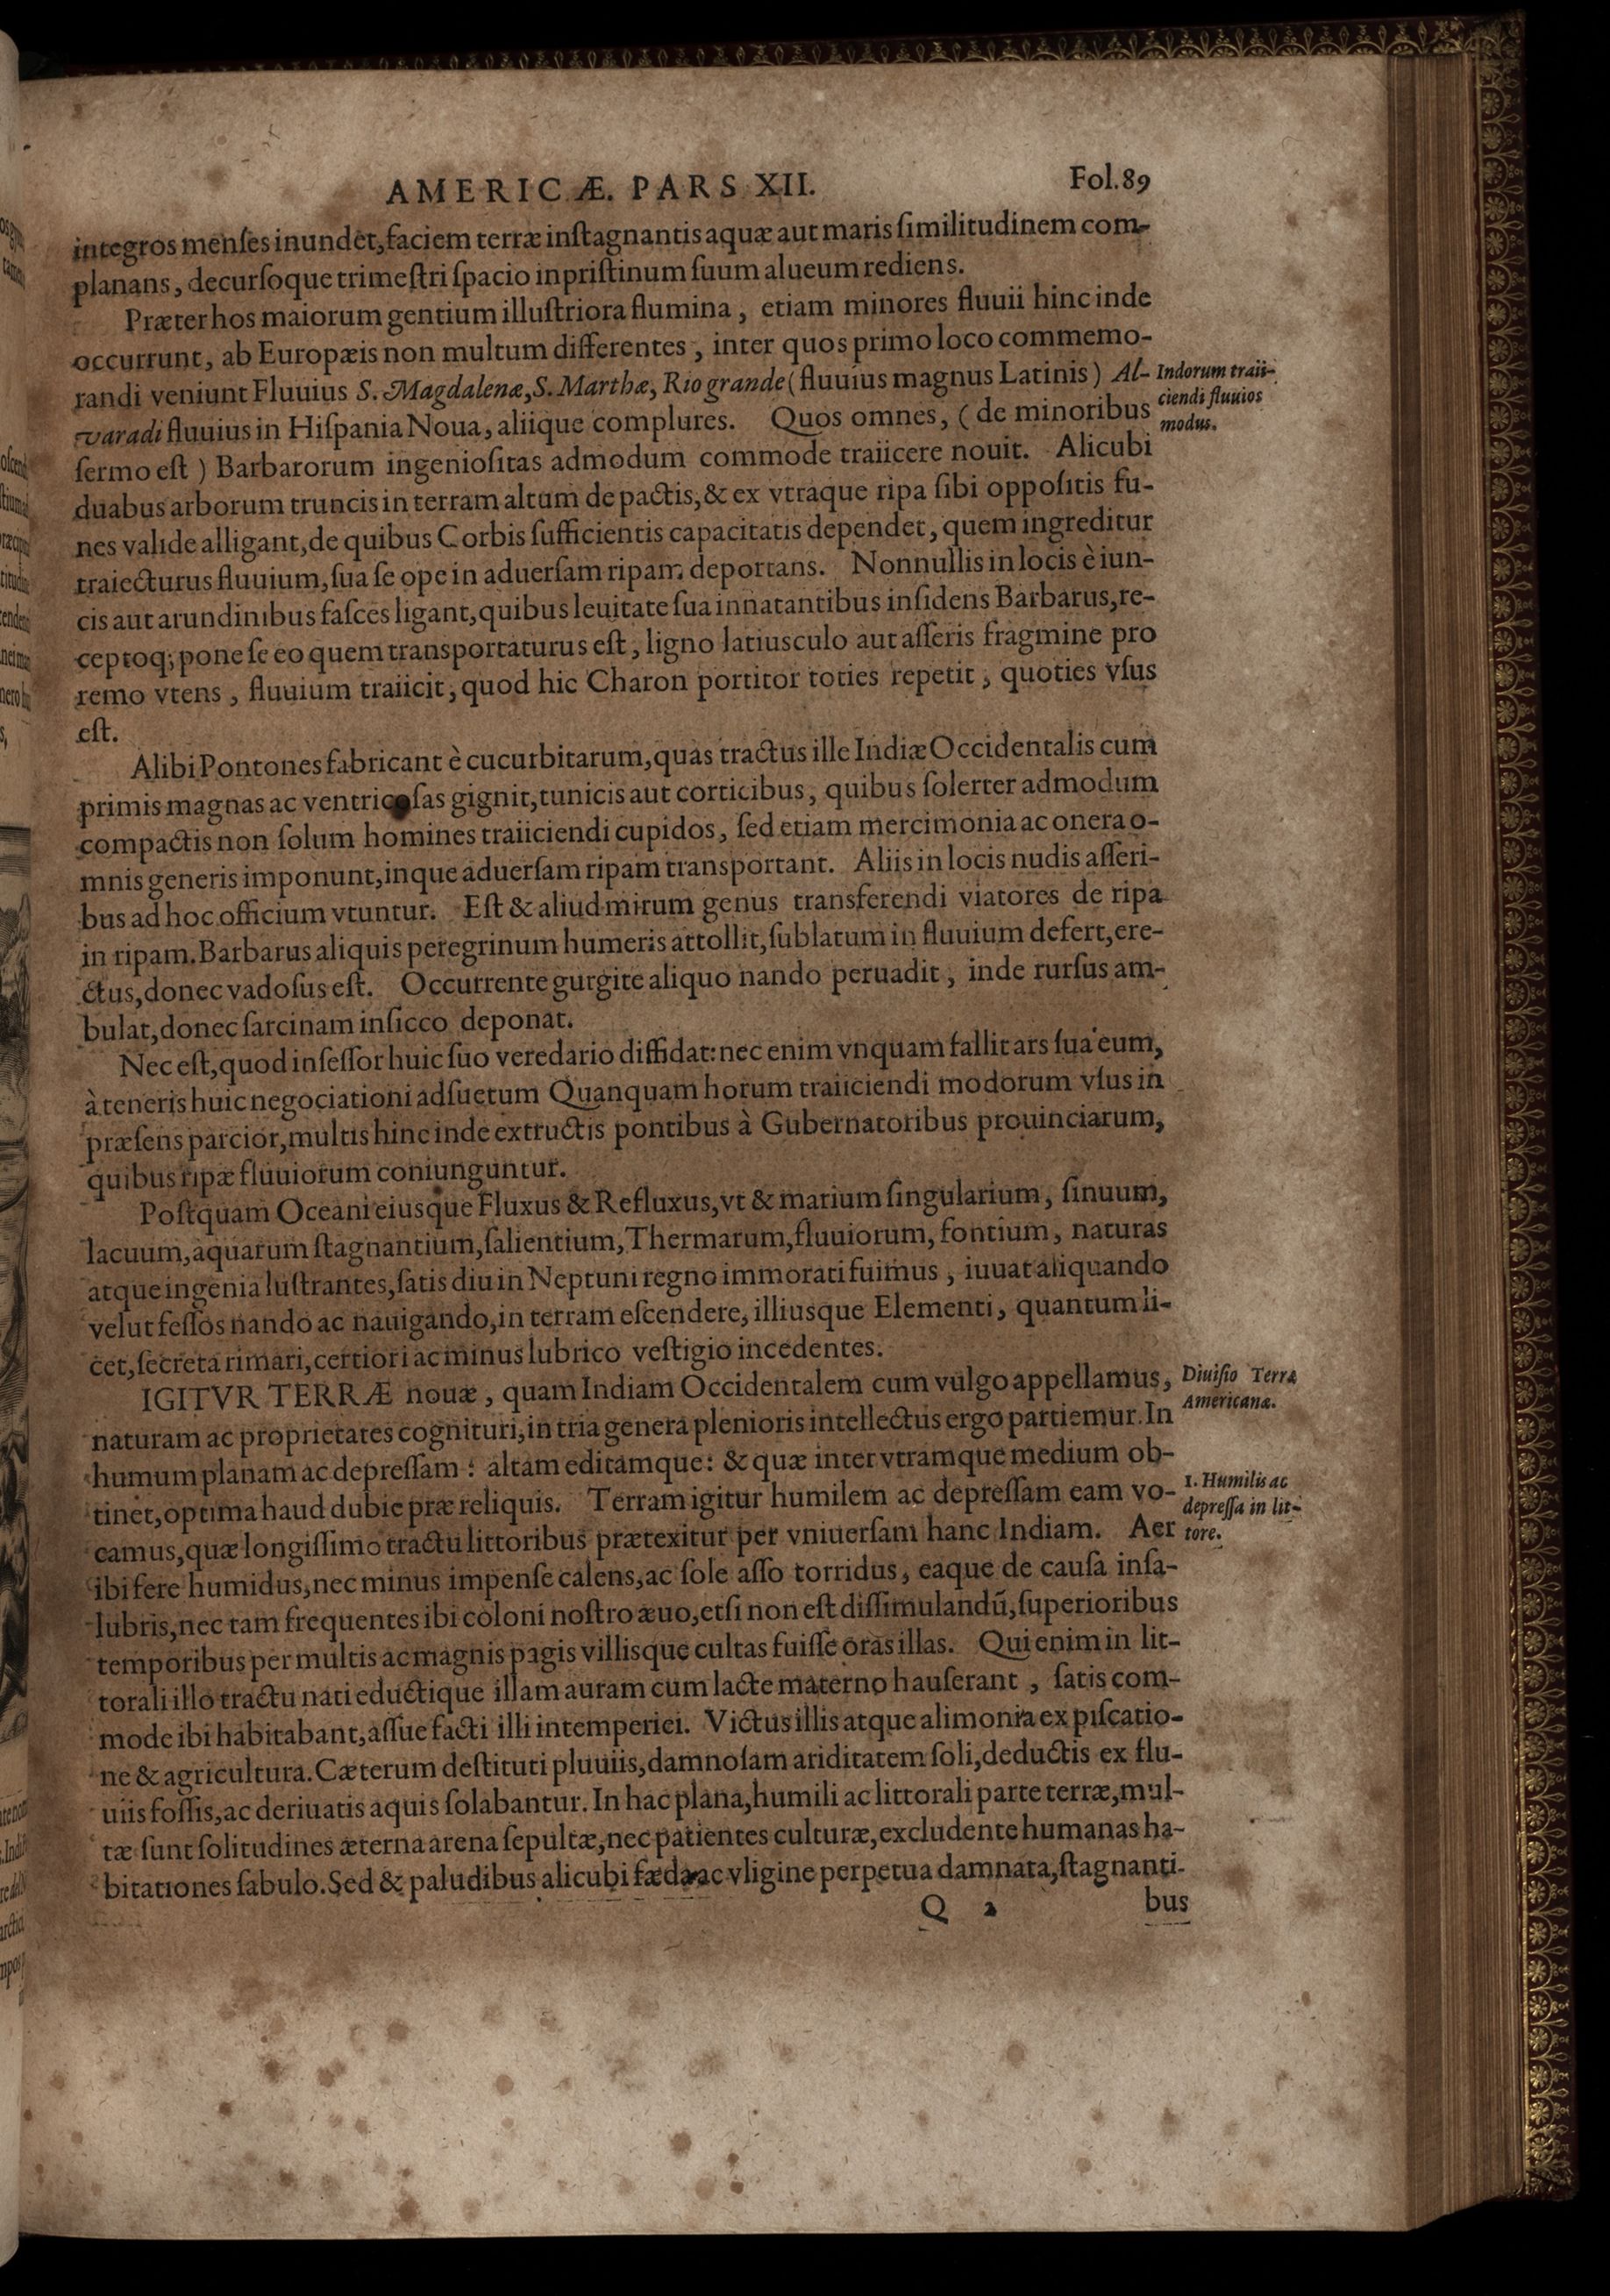 AMERICÆ. PARS XII. Fol.89
integros menſes inundet, faciem terræ inſtagnantis aquæ aut maris ſimilitudinem com-
planans, decurſoque trimeſtri ſpacio in priſtinum ſuum alueum rediens.
Præter hos maiorum gentium illuſtriora flumina, etiam minores fluuii hinc inde
occurrunt, ab Europæis non multum differentes, inter quos primo loco commemo-
randi veniunt Fluuius S. Magdalenæ, S. Marthæ, Rio grande (fluuius magnus Latinis) Al-
varadi fluuius in Hiſpania Noua, aliique complures. Quos omnes, (de minoribus
ſermo eſt) Barbarorum ingenioſitas admodum commode traiicere nouit. Alicubi
duabus arborum truncis in terram altum depactis, & ex vtraque ripa ſibi oppoſitis fu-
nes valide alligant, de quibus Corbis ſufficientis capacitatis dependet, quem ingreditur
traiecturus fluuium, ſua ſe ope in aduerſam ripam deportans. Nonnullis in locis è iun-
cis aut arundinibus faſces ligant, quibus leuitate ſua innatantibus inſidens Barbarus, re-
ceptoq; pone ſe eo quem transportaturus eſt, ligno latiusculo aut aſſeris fragmine pro
remo vtens, fluuium traiicit, quod hic Charon portitor toties repetit, quoties vſus
eſt.
Alibi Pontones fabricant è cucurbitarum, quas tractus ille Indiæ Occidentalis cum
primis magnas ac ventricoſas gignit, tunicis aut corticibus, quibus ſolerter admodum
compactis non ſolum homines traiiciendi cupidos, ſed etiam mercimonia ac onera o-
mnis generis imponunt, inque aduerſam ripam transportant. Aliis in locis nudis aſſeri-
bus ad hoc officium vtuntur. Eſt & aliud mirum genus transferendi viatores de ripa
in ripam. Barbarus aliquis peregrinum humeris attollit, ſublatum in fluuium defert, ere-
ctus, donec vadoſus eſt. Occurrente gurgite aliquo nando peruadit, inde rurſus am-
bulat, donec ſarcinam in ſicco deponat.
Nec eſt, quod inſeſſor huic ſuo veredario diffidat: nec enim vnquam fallit ars ſua eum,
à teneris huic negociationi adſuetum Quanquam horum traiiciendi modorum vſus in
præſens parcior, multis hinc inde extructis pontibus à Gubernatoribus prouinciarum,
quibus ripæ fluuiorum coniunguntur.
Poſtquam Oceani eiusque Fluxus & Refluxus, vt & marium ſingularium, ſinuum,
lacuum, aquarum ſtagnantium, ſalientium, Thermarum, fluuiorum, fontium, naturas
atque ingenia luſtrantes, ſatis diu in Neptuni regno immorati fuimus, iuuat aliquando
velut feſſos nando ac nauigando, in terram eſcendere, illiusque Elementi, quantum li-
cet, ſecreta rimari, certiori ac minus lubrico veſtigio incedentes.
IGITVR TERRÆ nouæ, quam Indiam Occidentalem cum vulgo appellamus,
naturam ac proprietates cognituri, in tria genera plenioris intellectus ergo partiemur. In
humum planam ac depreſſam: altam editamque: & quæ inter vtramque medium ob-
tinet, optima haud dubie præ reliquis. Terram igitur humilem ac depreſſam eam vo-
camus, quæ longiſſimo tractu littoribus prætexitur per vniuerſam hanc Indiam. Aer
ibi fere humidus, nec minus impenſe calens, ac ſole aſſo torridus, eaque de cauſa inſa-
lubris, nec tam frequentes ibi coloni noſtro æuo, etſi non eſt diſſimulandū, ſuperioribus
temporibus per multis ac magnis pagis villisque cultas fuiſſe oras illas. Qui enim in lit-
torali illo tractu nati eductique illam auram cum lacte materno hauſerant, ſatis com-
mode ibi habitabant, aſſuefacti illi intemperiei. Victus illis atque alimonia ex piſcatio-
ne & agricultura. Cæterum deſtituti pluuiis, damnoſam ariditatem ſoli, deductis ex flu-
uiis foſſis, ac deriuatis aquis ſolabantur. In hac plana, humili ac littorali parte terræ, mul-
tæ ſunt ſolitudines æterna arena ſepultæ, nec patientes culturæ, excludente humanas ha-
bitationes ſabulo. Sed & paludibus alicubi fæda ac vligine perpetua damnata, ſtagnanti-
Q 2 bus
Indorum traii-
ciendi fluuios
modus.
Diuiſio Terræ
Americanæ.
1. Humilis ac
depreſſa in lit-
tore.